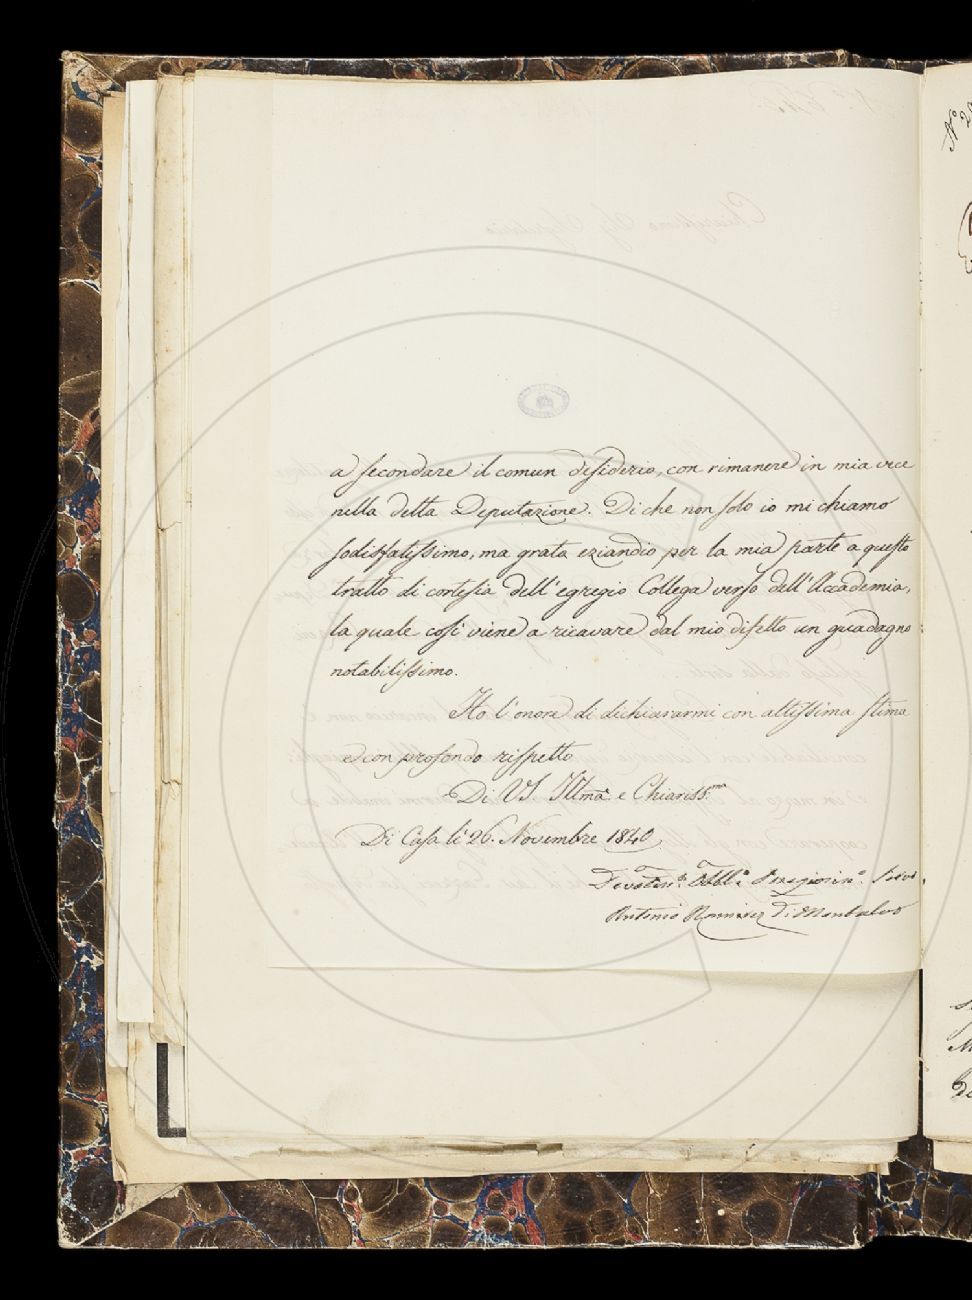 a secondare il comun desiderio, con rimanere in mia vece
nella detta Deputazione. Di che non solo io mi chiamo
sodisfatissimo, ma grata eziandio per la mia parte a questo
tratto di cortesia dell'egregio Collega verso dell'Accademia,
la quale così viene a ricavare dal mio difetto un guadagno
notabilissimo.
Ho l'onore di dichiararmi con altissima stima
e con profondo rispetto
Di VS. Illma e Chiariss.mo
Di Casa li 26. Novembre 1840
Antonio Ramirez Di Montalvo
N°